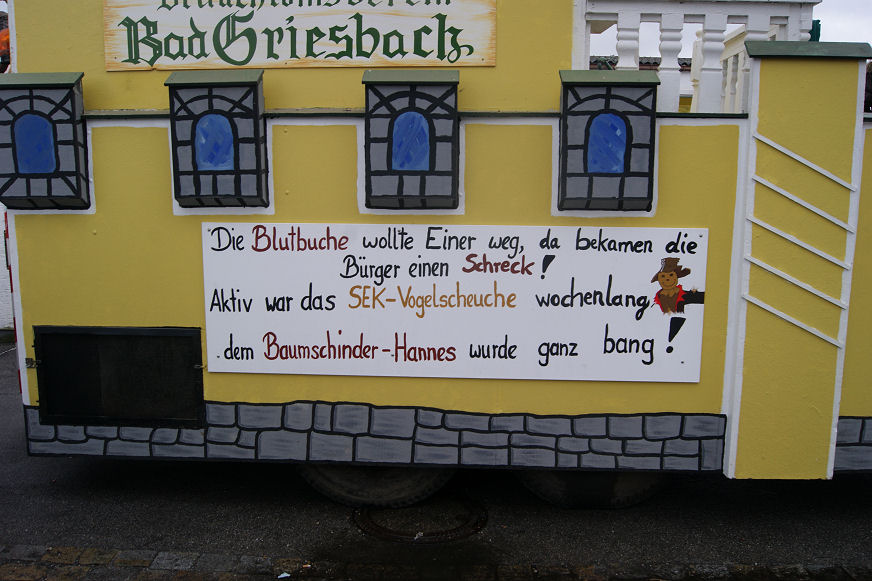 Brauchtumsverein
Bad Griesbach
Die Blutbuche wollte Einer weg, da bekamen die
Bürger einen Schreck!
Aktiv war das SEK-Vogelscheuche wochenlang
dem Baumschinder-Hannes wurde ganz bang!